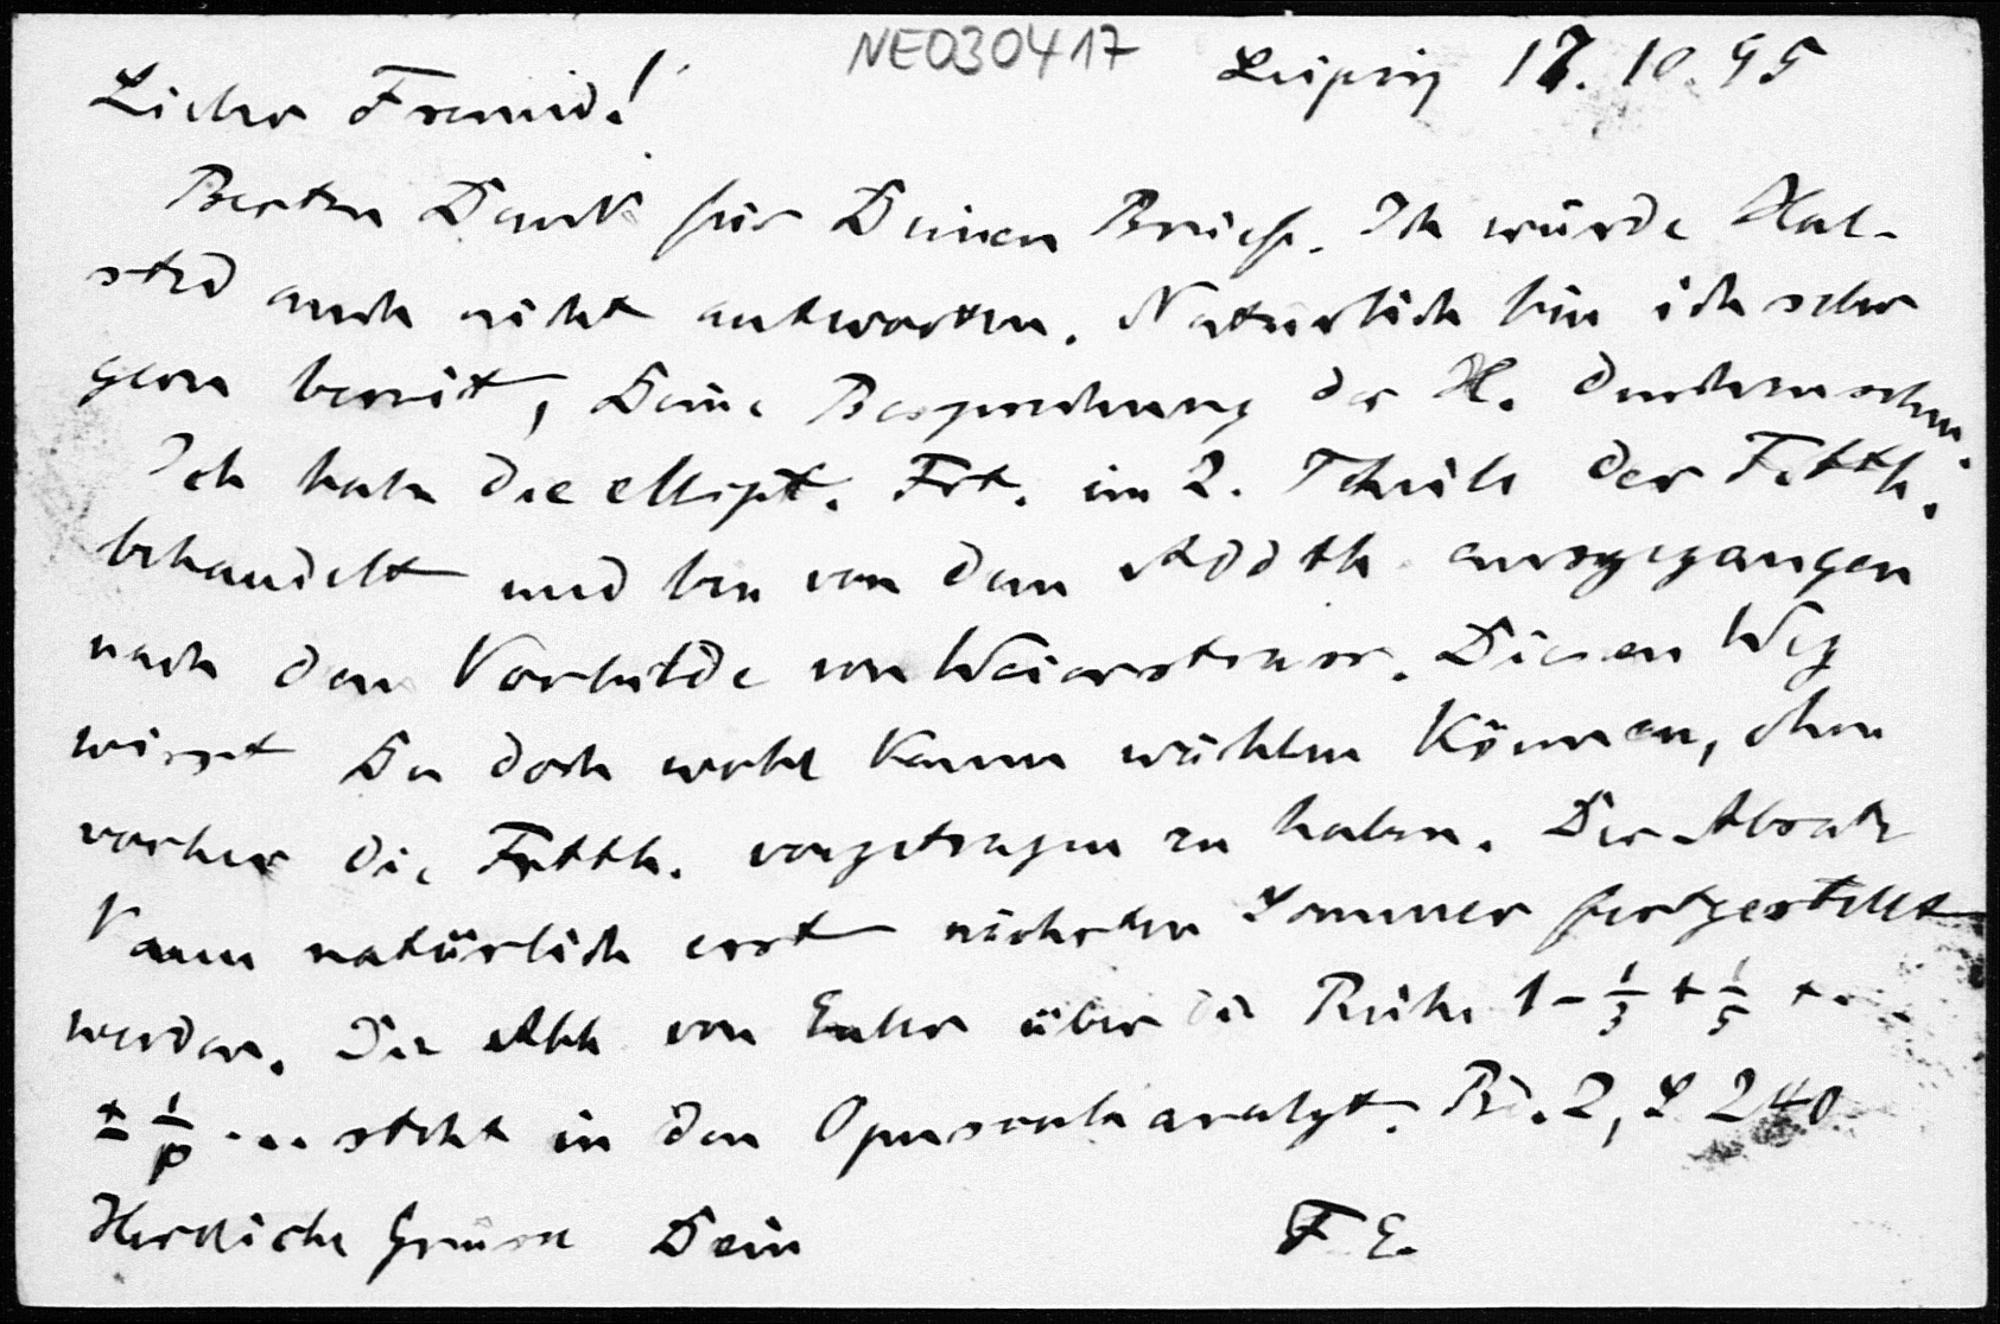 NE030417
Leipzig 17. 10. 95
Lieber Freund!
Besten Dank für Deinen Brief. Ich würde Hal-
sted auch nicht antworten. Natürlich bin ich sehr
gern bereit, Deine Besprechung des H. durchzusehen.
Ich habe die ellipt. Fkt. im 2. Theile der Fctth.
behandelt und bin von dem Addth ausgegangen
nach dem Vorbilde von Weierstrass. Diesen Weg
wirst Du doch wohl kaum wählen können, ohne
vorher die Fctth. vorgetragen zu haben. Der Absatz
kann natürlich erst nächsten Sommer festgestellt
werden. Die Abh von Euler über die Reihe 1 - 1/3 + 1/5 + ...
± 1/p ... steht in den Opuscula analyt. Bd. 2, S 240
Herzliche Grüsse Dein F. E.